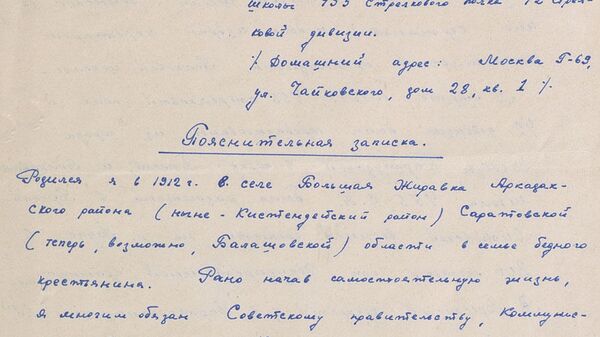 школы 133 Стрелкового полка 72 Стрел-
ковой дивизии.
/ Домашний адрес: Москва Г-69,
ул. Чайковского, дом 28, кв. 1 /.
Пояснительная записка.
Родился я в 1912 г. в селе Большая Журавка Аркадак-
ского района (ныне - Кистендейский район) Саратовской
(теперь, возможно, Балашовской) области в семье бедного
крестьянина. Рано начав самостоятельную жизнь,
я многим обязан Советскому правительству, Коммунис-